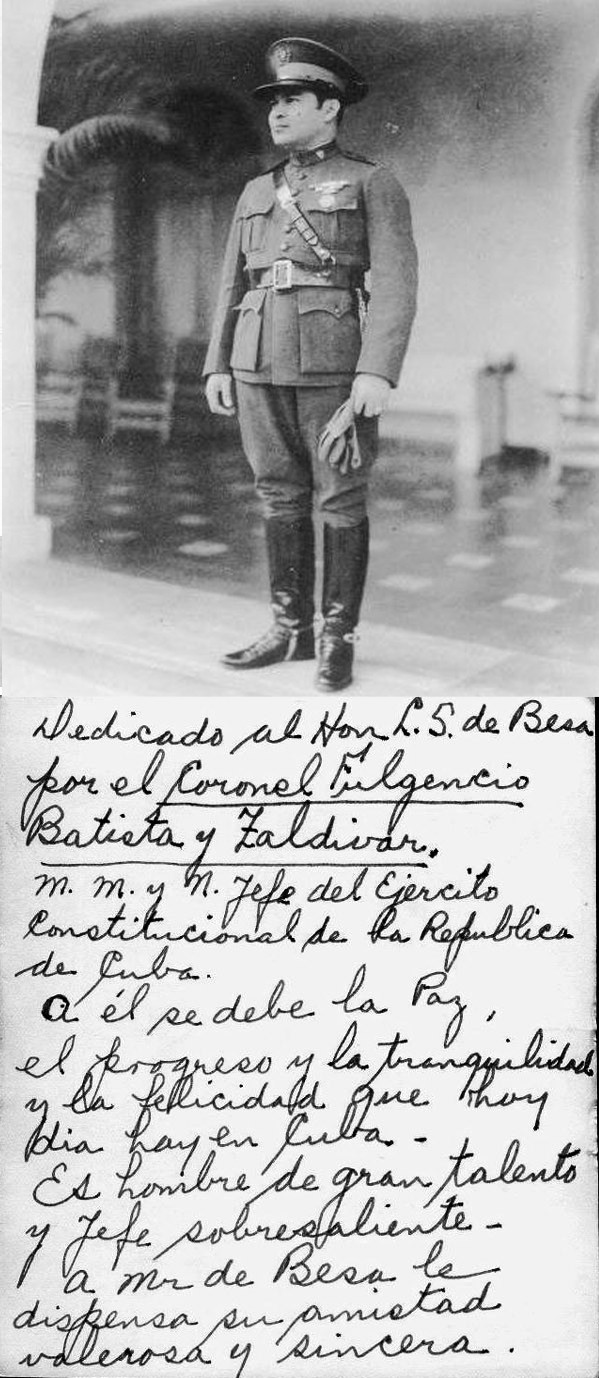 Dedicado al Hon L. S. de Besa
por el Coronel Fulgencio
Batista y Zaldivar.
M. M. y N. Jefe del Ejercito
Constitucional de la Republica
de Cuba.
A él se debe la Paz,
el progreso y la tranquilidad
y la felicidad que hoy
dia hay en Cuba -
Es hombre de gran talento
y Jefe sobresaliente -
a Mr de Besa le
dispensa su amistad
valerosa y sincera.